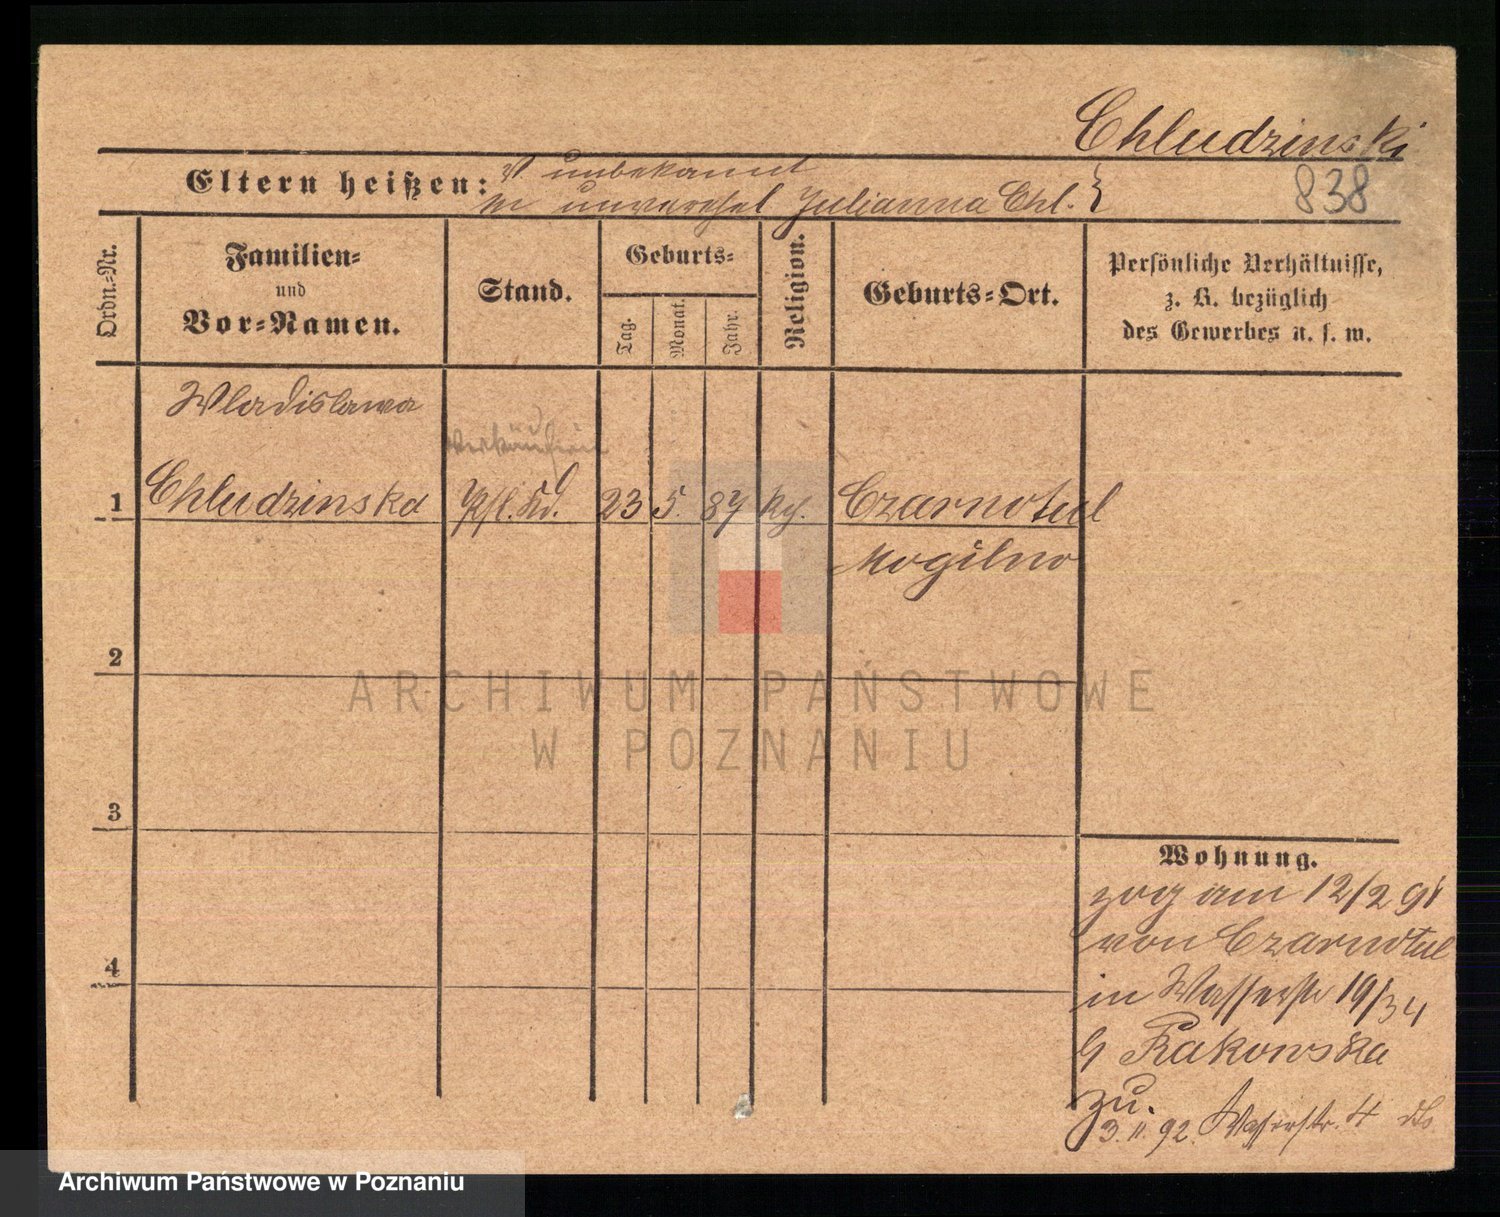 Chludzinski
838
Eltern heißen: V unbekannt
M unverehel Julianna Chl.
Ordn.-Nr.
Familien-
und
Vor-Namen.
Stand.
Geburts-
Tag.
Monat.
Jahr.
Religion.
Geburts-Ort.
Persönliche Verhältnisse,
z. B. bezüglich
des Gewerbes u. s. w.
Wladislawa
Verkäuferin
1 Chludzinska Pfl. Kd. 23 5. 87 kch. Czarnotul
Mogilno
2
ARCHIWUM PAŃSTWOWE
W POZNANIU
3
Wohnung.
zog am 12/2 91
von Czarnotul
4
in Wasserstr 19/34
Rakowska
zu.
3. 11. 92. Wasserstr. 4
Archiwum Państwowe w Poznaniu